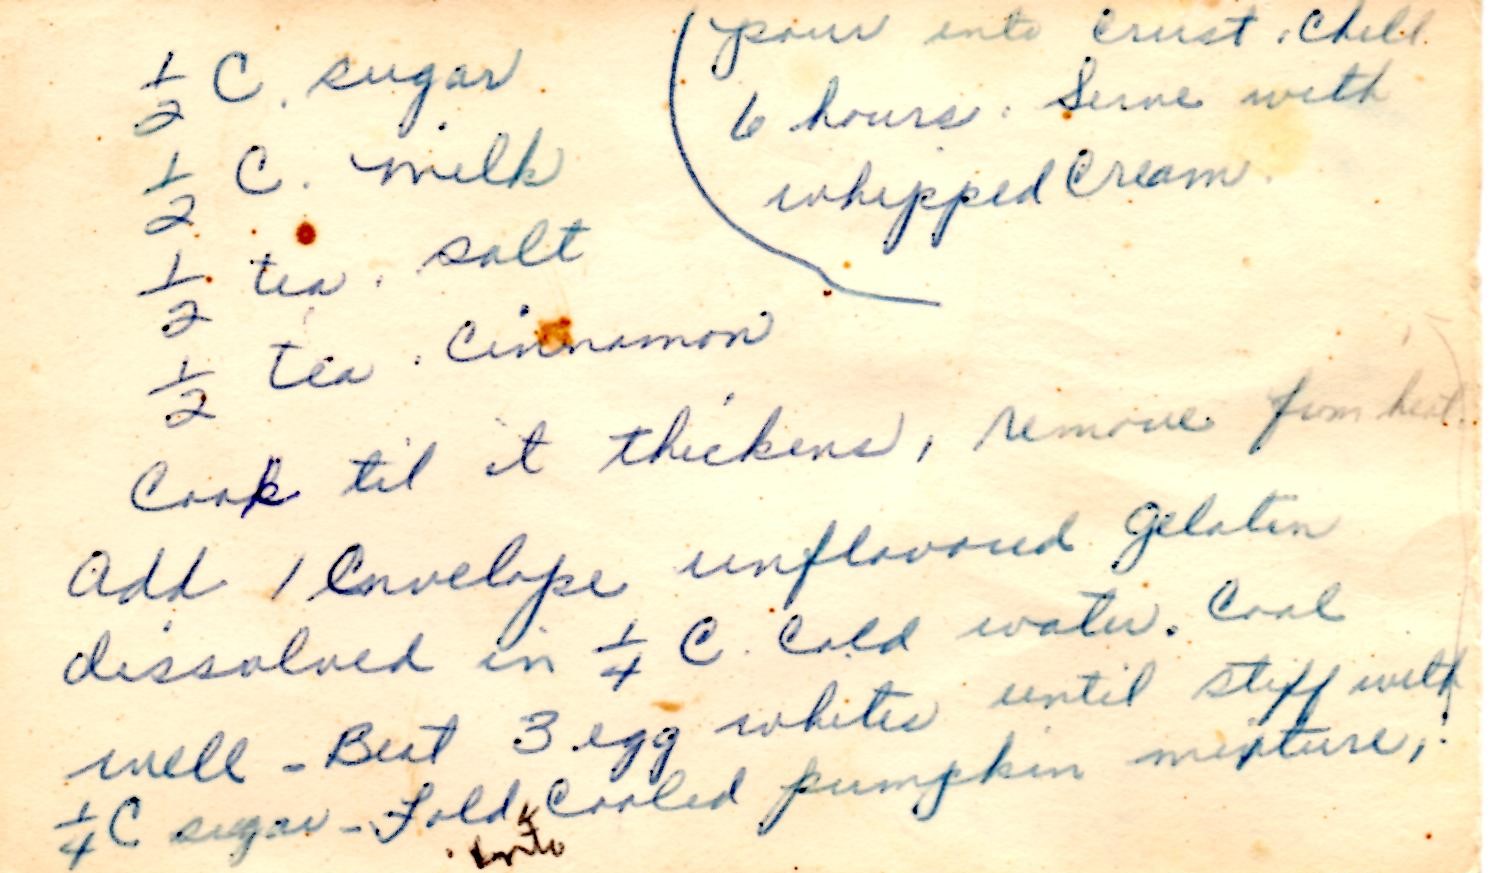 1/2 C. sugar
1/2 C. milk
1/2 tea. salt
1/2 tea. cinnamon
Cook til it thickens, remove from heat.
Add 1 Envelope unflavored gelatin
dissolved in 1/4 C. Cold water. Cool
well - Beat 3 egg whites until stiff with
1/4 C sugar - Fold into Cooled pumpkin mixture,
pour into crust. Chill
6 hours. Serve with
whipped Cream.